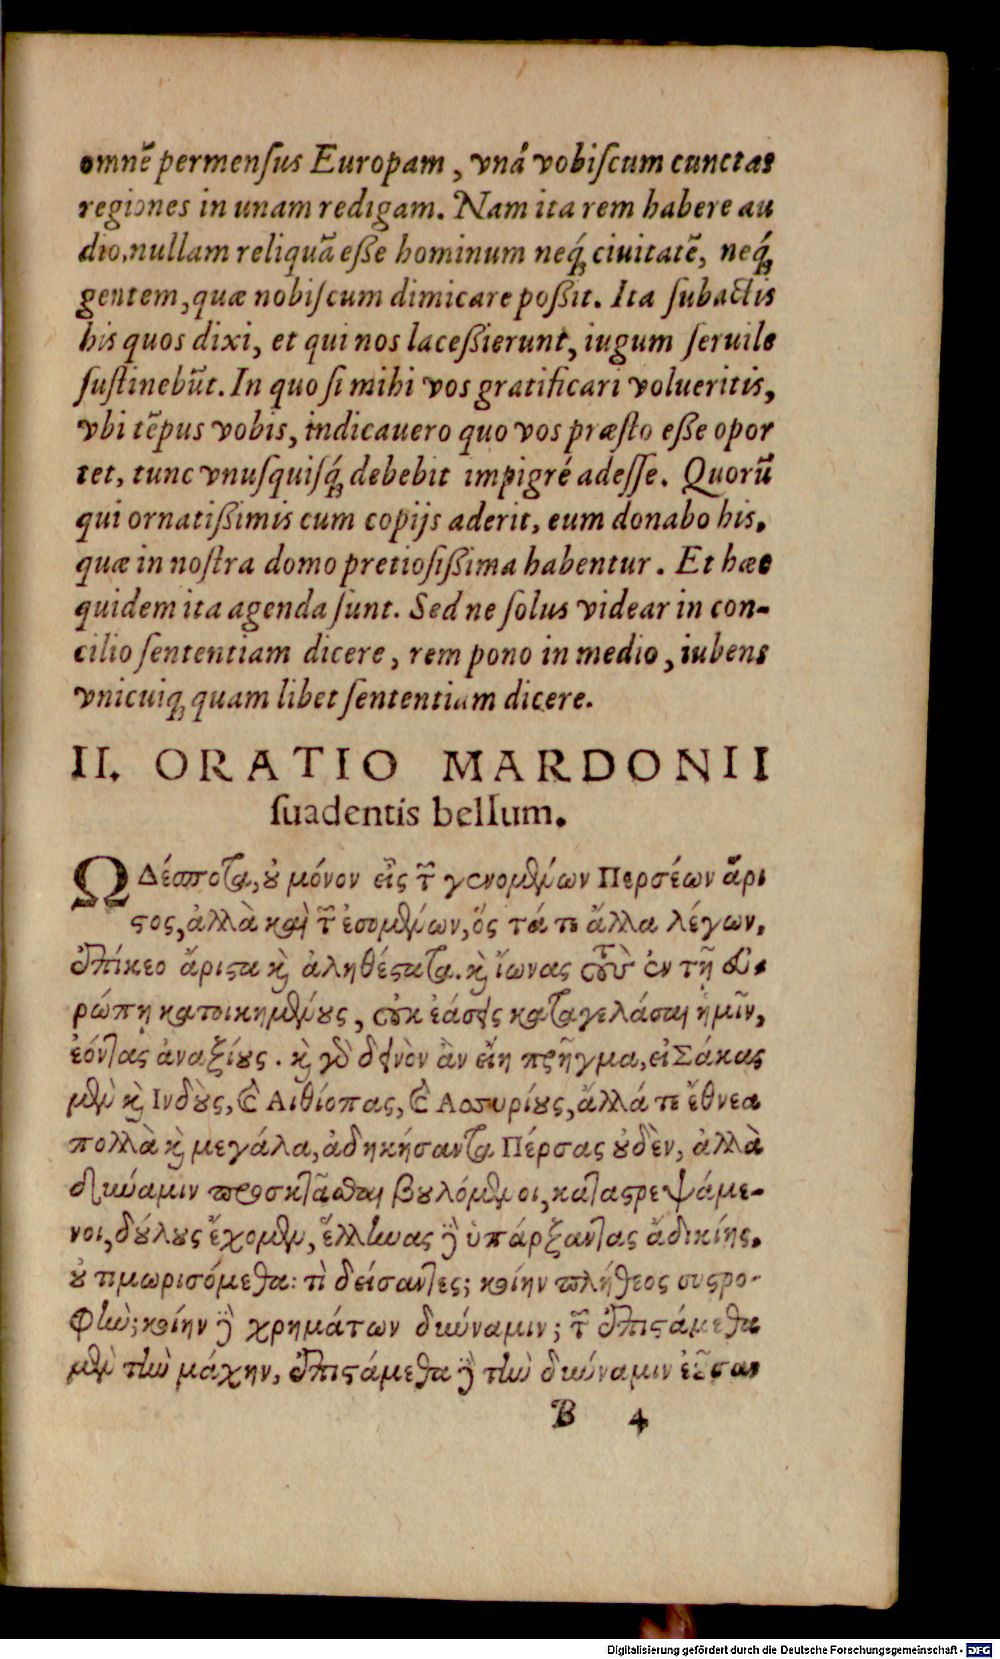 omnẽ permenſus Europam, vnâ vobiſcum cunctas
regiones in unam redigam. Nam ita rem habere au
dio, nullam reliquã eſſe hominum neq́ꝫ ciuitatẽ, neq́ꝫ
gentem, quæ nobiſcum dimicare poſſit. Ita ſubactis
his quos dixi, et qui nos laceſſierunt, iugum ſeruile
ſuſtinebũt. In quo ſi mihi vos gratificari volueritis,
vbi tẽpus vobis, indicauero quo vos præſto eſſe opor
tet, tunc vnuſquiſq́ꝫ debebit impigré adeſſe. Quorũ
qui ornatiſſimis cum copijs aderit, eum donabo his,
quæ in noſtra domo pretioſiſſima habentur. Et hæc
quidem ita agenda ſunt. Sed ne ſolus videar in con-
cilio ſententiam dicere, rem pono in medio, iubens
vnicuiqꝫ quam libet ſententiam dicere.
II. ORATIO MARDONII
ſuadentis bellum.
Ω Δέσποτα, ȣ μόνον εἶς τῶν γενομένων Περσέων ἄρι
στος, ἀλλὰ καὶ τῶν ἐσομένων, ὅς τά τε ἄλλα λέγων,
ἐπίκεο ἄριστα καὶ ἀληθέστατα. καὶ ἴωνας τοὺς ἐν τῇ Εὐ-
ρώπῃ κατοικημένȣς, οὐκ ἐάσεις καταγελάσαι ἡμῖν,
ἐόντας ἀναξίȣς. καὶ γὰρ δεινὸν ἂν εἴη πρῆγμα, εἰ Σάκας
μὲν καὶ Ινδȣ̀ς, καὶ Αιθίοπας, καὶ Ασσυρίȣς, ἄλλά τε ἔθνεα
πολλὰ καὶ μεγάλα, ἀδικήσαντα Πέρσας ȣδὲν, ἀλλὰ
δύναμιν προσκτᾶσθαι βȣλόμενοι, καταστρεψάμε-
νοι, δȣ́λȣς ἔχομεν, ἕλληνας δὲ ὑπάρξαντας ἀδικίης,
ȣ τιμωρισόμεθα: τὶ δείσαντες; κοίην πλήθεος συστρο-
φὴν; κοίην δὲ χρημάτων δύναμιν; τῶν ἐπιστάμεθα
μὲν τὴν μάχην, ἐπιστάμεθα δὲ τὴν δύναμιν ἐȣ͂σαν
B 4
Digitalisierung gefördert durch die Deutsche Forschungsgemeinschaft - DFG